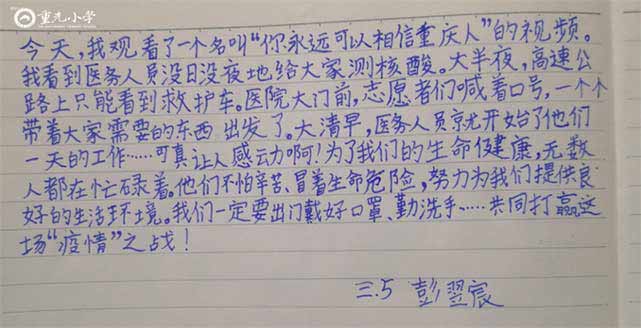 重九小学
今天,我观看了一个名叫“你永远可以相信重庆人”的视频。
我看到医务人员没日没夜地给大家测核酸。大半夜,高速公
路上只能看到救护车。医院大门前,志愿者们喊着口号,一个个
带着大家需要的东西出发了。大清早,医务人员就开始了他们
一天的工作……可真让人感动啊!为了我们的生命健康,无数
人都在忙碌着。他们不怕辛苦、冒着生命危险,努力为我们提供良
好的生活环境。我们一定要出门戴好口罩、勤洗手……共同打赢这
场“疫情”之战!
三.5 彭翌宸